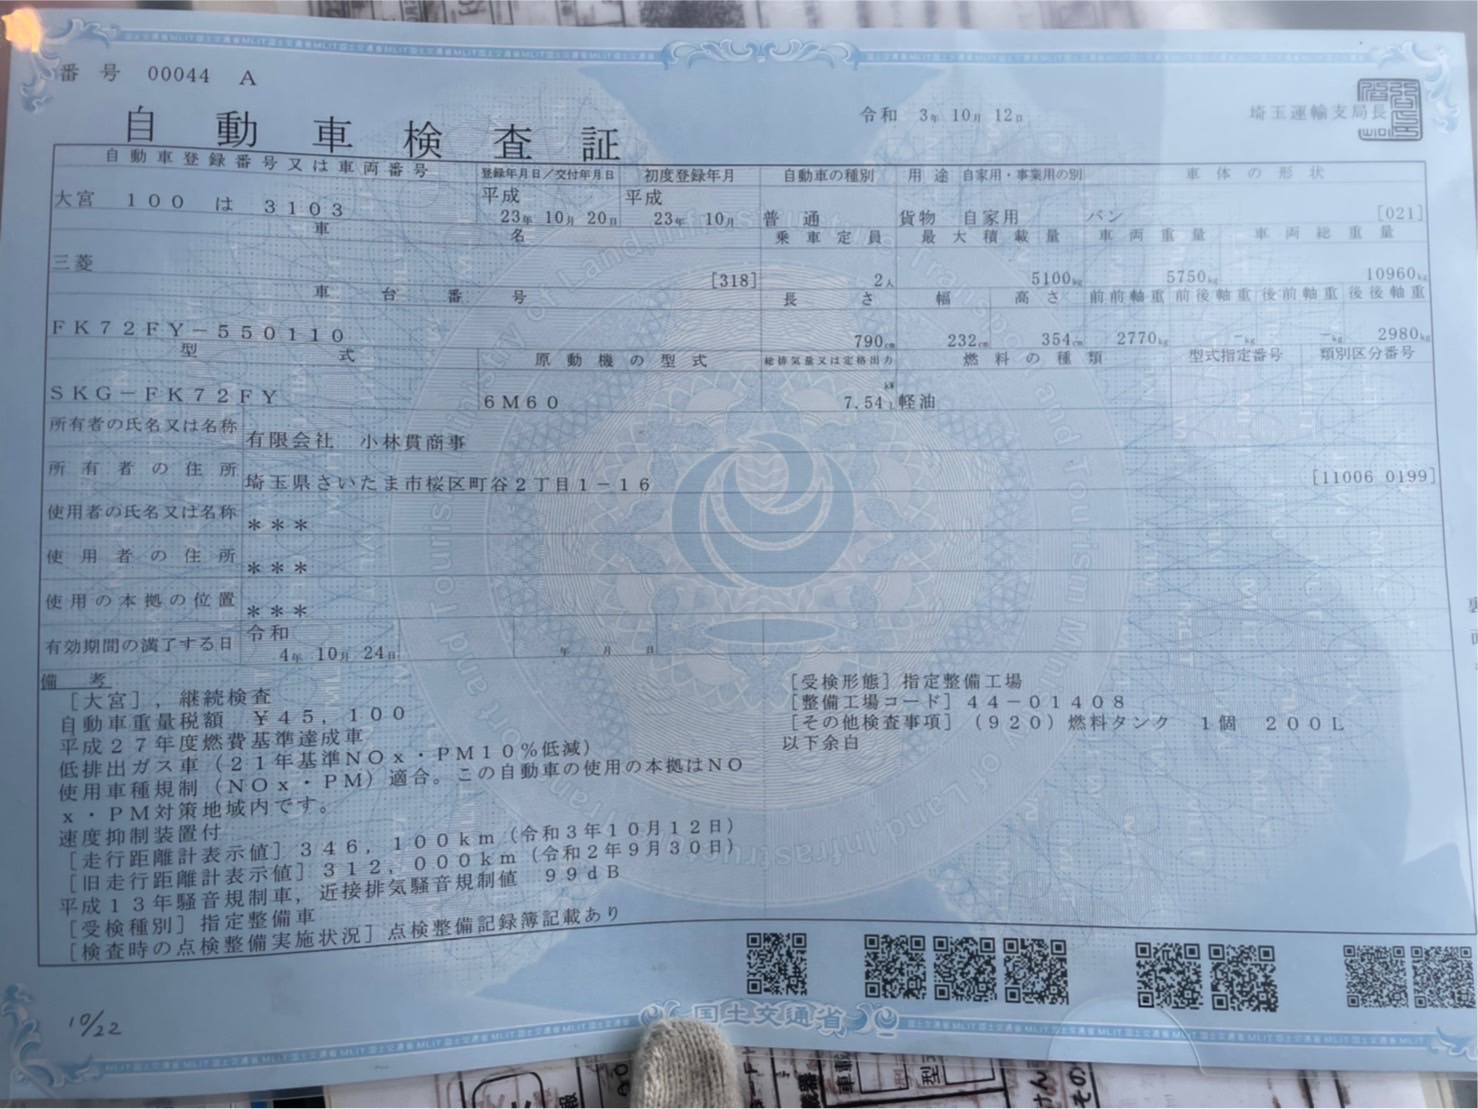 番号 00044 A
自動車検査証
令和 3年 10月 12日
埼玉運輸支局長
自動車登録番号又は車両番号 登録年月日/交付年月日 初度登録年月 自動車の種別 用途 自家用・事業用の別 車体の形状
大宮 100 は 3103 平成 23年 10月 20日 平成 23年 10月 普通 貨物 自家用 バン [021]
車名 乗車定員 最大積載量 車両重量 車両総重量
三菱 [318] 2人 5100kg 5750kg 10960kg
車台番号 長さ 幅 高さ 前前軸重 前後軸重 後前軸重 後後軸重
FK72FY-550110 790cm 232cm 354cm 2770kg -kg -kg 2980kg
型式 原動機の型式 総排気量又は定格出力 燃料の種類 型式指定番号 類別区分番号
SKG-FK72FY 6M60 kW 7.54L 軽油
所有者の氏名又は名称 有限会社 小林貫商事
所有者の住所 埼玉県さいたま市桜区町谷2丁目1-16 [11006 0199]
使用者の氏名又は名称 ***
使用者の住所 ***
使用の本拠の位置 ***
有効期間の満了する日 令和 4年 10月 24日 年 月 日
備考
[大宮],継続検査
自動車重量税額 ¥45,100
平成27年度燃費基準達成車
低排出ガス車(21年基準NOx・PM10%低減)
使用車種規制(NOx・PM)適合。この自動車の使用の本拠はNO
x・PM対策地域内です。
速度抑制装置付
[走行距離計表示値]346,100km(令和3年10月12日)
[旧走行距離計表示値]312,000km(令和2年9月30日)
平成13年騒音規制車,近接排気騒音規制値 99dB
[受検種別]指定整備車
[検査時の点検整備実施状況]点検整備記録簿記載あり
[受検形態]指定整備工場
[整備工場コード]44-01408
[その他検査事項](920)燃料タンク 1個 200L
以下余白
10/22
国土交通省